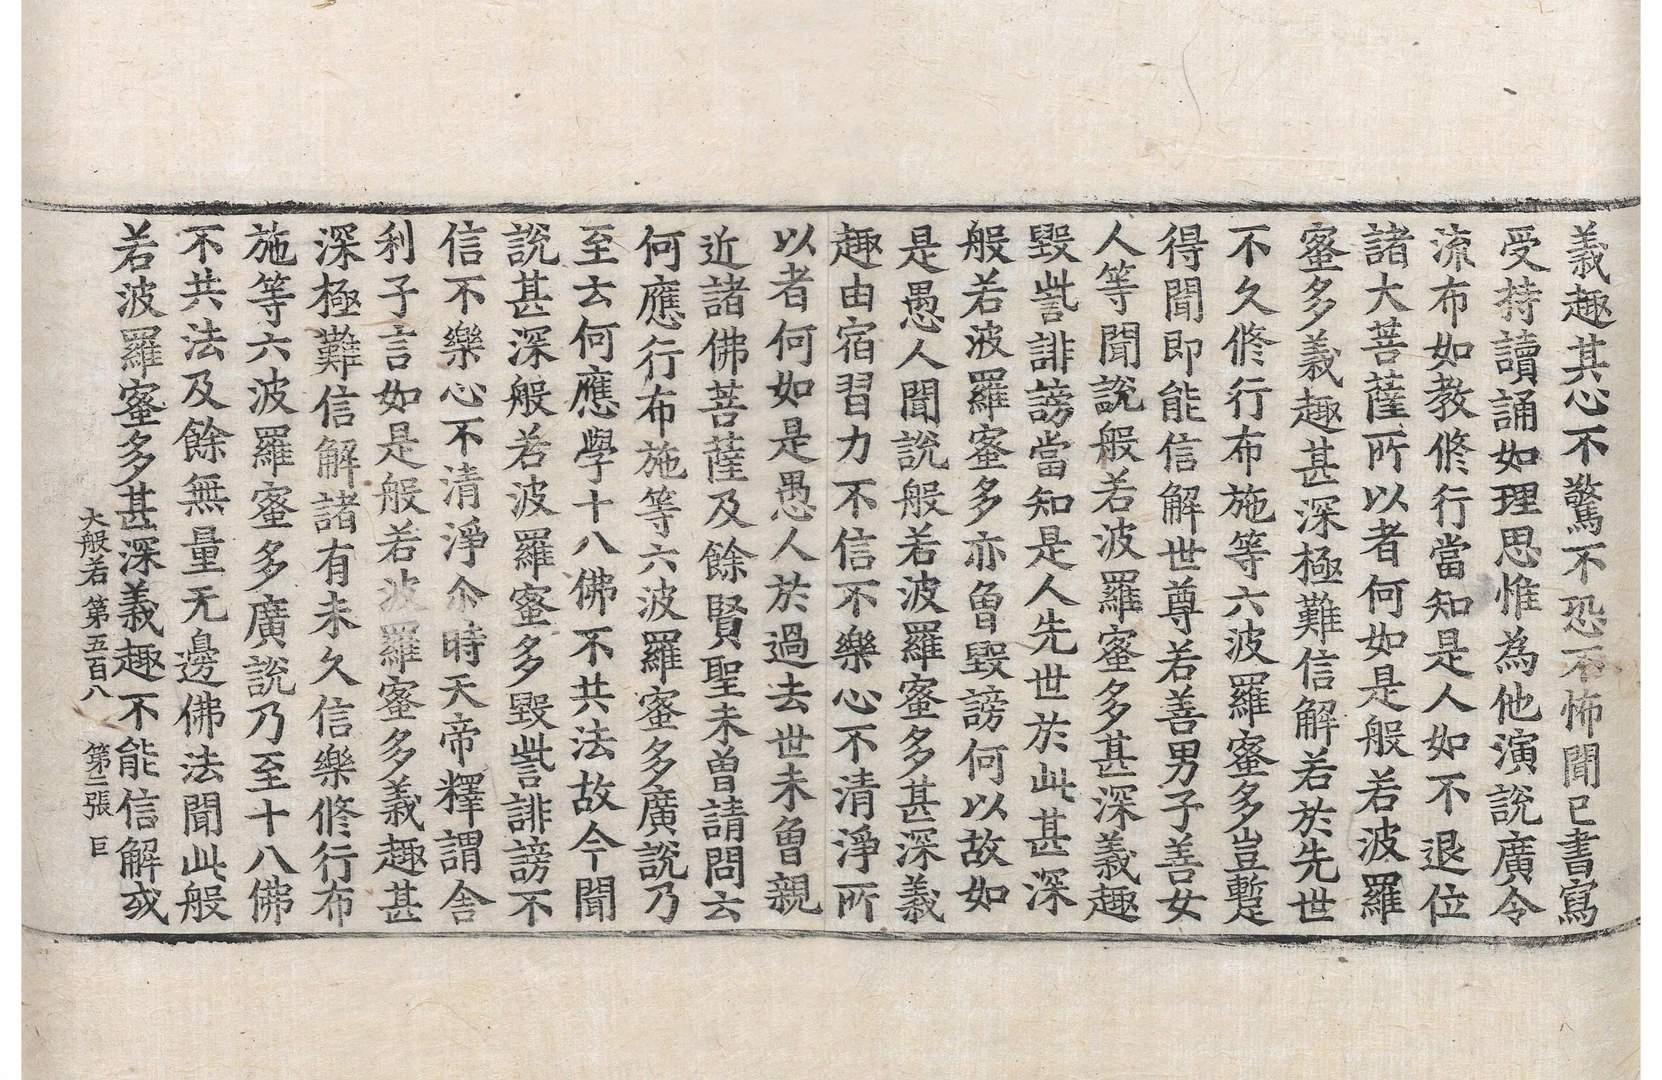 義趣其心不驚不恐不怖聞已書寫
受持讀誦如理思惟為他演說廣令
流布如教修行當知是人如不退位
諸大菩薩所以者何如是般若波羅
蜜多義趣甚深極難信解若於先世
不久修行布施等六波羅蜜多豈暫
得聞即能信解世尊若善男子善女
人等聞說般若波羅蜜多甚深義趣
毀呰誹謗當知是人先世於此甚深
般若波羅蜜多亦曾毀謗何以故如
是愚人聞說般若波羅蜜多甚深義
趣由宿習力不信不樂心不清淨所
以者何如是愚人於過去世未曾親
近諸佛菩薩及餘賢聖未曾請問云
何應行布施等六波羅蜜多廣說乃
至云何應學十八佛不共法故今聞
說甚深般若波羅蜜多毀呰誹謗不
信不樂心不清淨尒時天帝釋謂舍
利子言如是般若波羅蜜多義趣甚
深極難信解諸有未久信樂修行布
施等六波羅蜜多廣說乃至十八佛
不共法及餘無量无邊佛法聞此般
若波羅蜜多甚深義趣不能信解或
大般若第五百八 第三張 巨